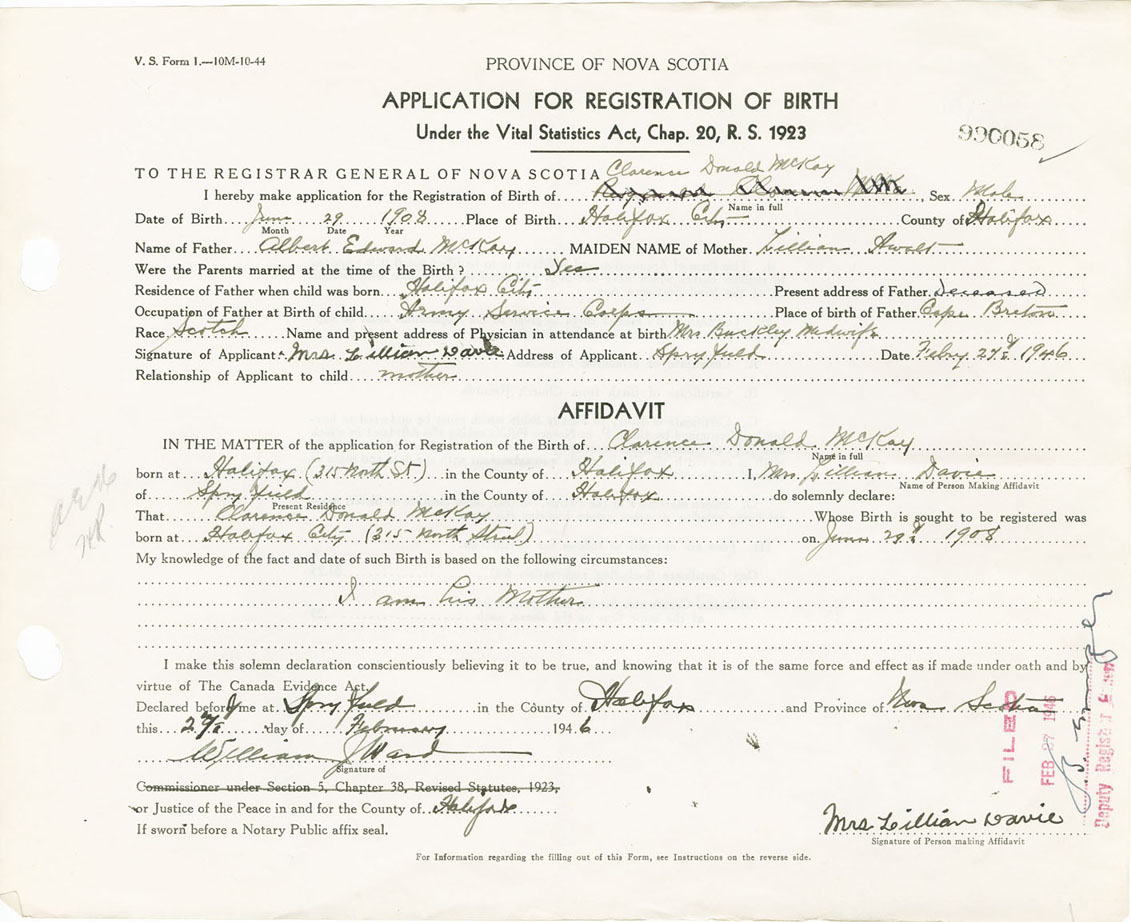 V. S. Form 1.—10M-10-44
PROVINCE OF NOVA SCOTIA
APPLICATION FOR REGISTRATION OF BIRTH
Under the Vital Statistics Act, Chap. 20, R. S. 1923
990058
TO THE REGISTRAR GENERAL OF NOVA SCOTIA Clarence Donald McKay
I hereby make application for the Registration of Birth of Sex Male
Name in full
Date of Birth June 29 1908 Place of Birth Halifax City County of Halifax
Month Date Year
Name of Father Albert Edward McKay MAIDEN NAME of Mother Lillian Awalt
Were the Parents married at the time of the Birth? Yes
Residence of Father when child was born Halifax City Present address of Father Deceased
Occupation of Father at Birth of child Army Service Corps Place of birth of Father Cape Breton
Race Scotch Name and present address of Physician in attendance at birth Mrs Buckley Midwife
Signature of Applicant Mrs Lillian Davie Address of Applicant Spryfield Date Febry 27th 1946
Relationship of Applicant to child mother
AFFIDAVIT
IN THE MATTER of the application for Registration of the Birth of Clarence Donald McKay
Name in full
born at Halifax (315 North St) in the County of Halifax I, Mrs Lillian Davie
Name of Person Making Affidavit
of Spryfield in the County of Halifax do solemnly declare:
Present Residence
That Clarence Donald McKay Whose Birth is sought to be registered was
born at Halifax City (315 North Street) on June 29th 1908
My knowledge of the fact and date of such Birth is based on the following circumstances:
I am his Mother
I make this solemn declaration conscientiously believing it to be true, and knowing that it is of the same force and effect as if made under oath and by
virtue of The Canada Evidence Act.
Declared before me at Spryfield in the County of Halifax and Province of Nova Scotia
this 27th day of February 1946
William J Ward
Signature of
Commissioner under Section 5, Chapter 38, Revised Statutes, 1923,
or Justice of the Peace in and for the County of Halifax
If sworn before a Notary Public affix seal.
Mrs Lillian Davie
Signature of Person making Affidavit
For Information regarding the filling out of this Form, see Instructions on the reverse side.
FILED
FEB 27 1946
Deputy Registrar